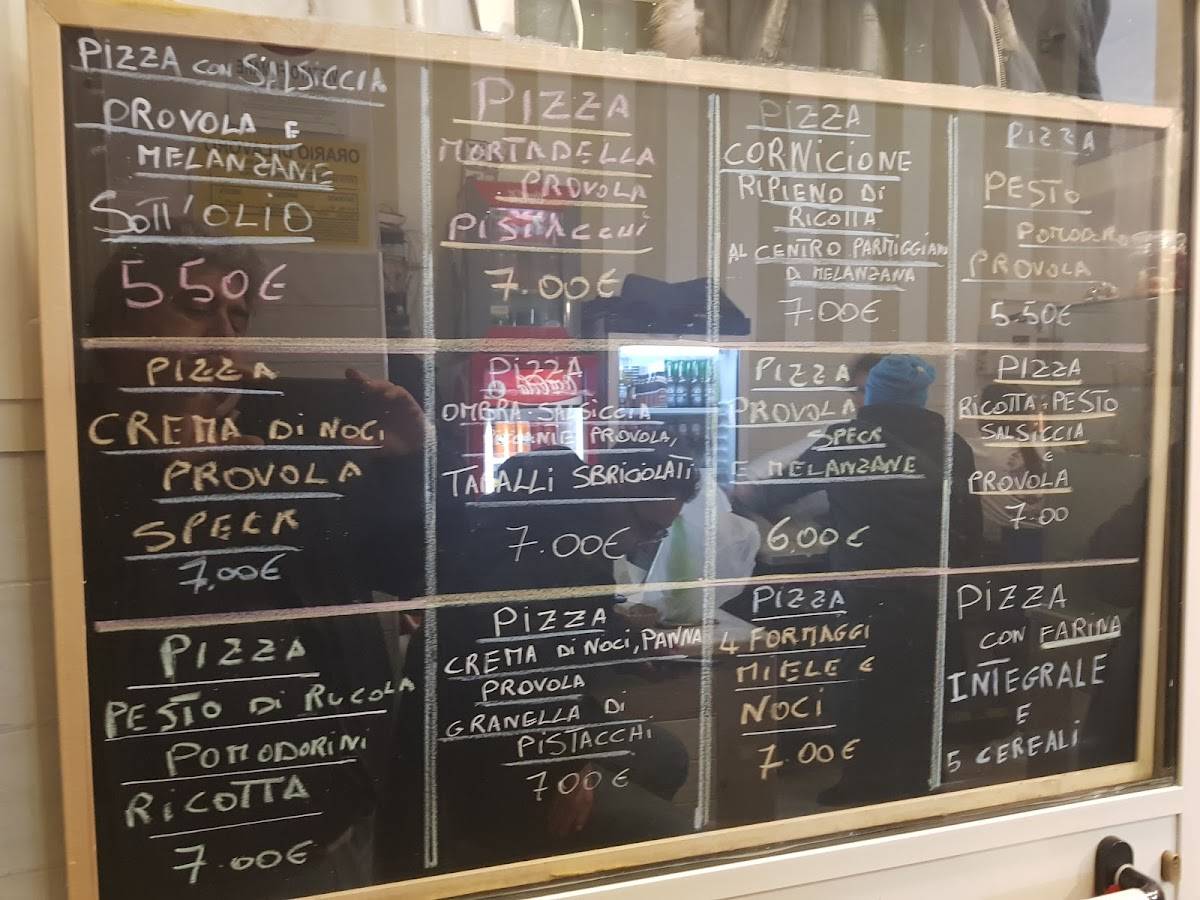 PIZZA CON SALSICCIA
PROVOLA E
MELANZANE
SOTT'OLIO
5.50€
PIZZA
MORTADELLA
PROVOLA
PISTACCHI
7.00€
PIZZA
CORNICIONE
RIPIENO DI
RICOTTA
AL CENTRO PARMIGGIANA
D MELANZANA
7.00€
PIZZA
PESTO
POMODORO
PROVOLA
5.50€
PIZZA
CREMA DI NOCI
PROVOLA
SPECK
7,00€
PIZZA
OMBRA SALSICCIA
PROVOLA,
TARALLI SBRIGOLATI
7.00€
PIZZA
PROVOLA
SPECK
E MELANZANE
6.00€
PIZZA
RICOTTA, PESTO
SALSICCIA
E
PROVOLA
7.00
PIZZA
PESTO DI RUCOLA
POMODORINI
RICOTTA
7.00€
PIZZA
CREMA DI NOCI, PANNA
PROVOLA
GRANELLA DI
PISTACCHI
7.00€
PIZZA
4 FORMAGGI
MIELE E
NOCI
7.00€
PIZZA
CON FARINA
INTEGRALE
E
5 CEREALI
Coca-Cola